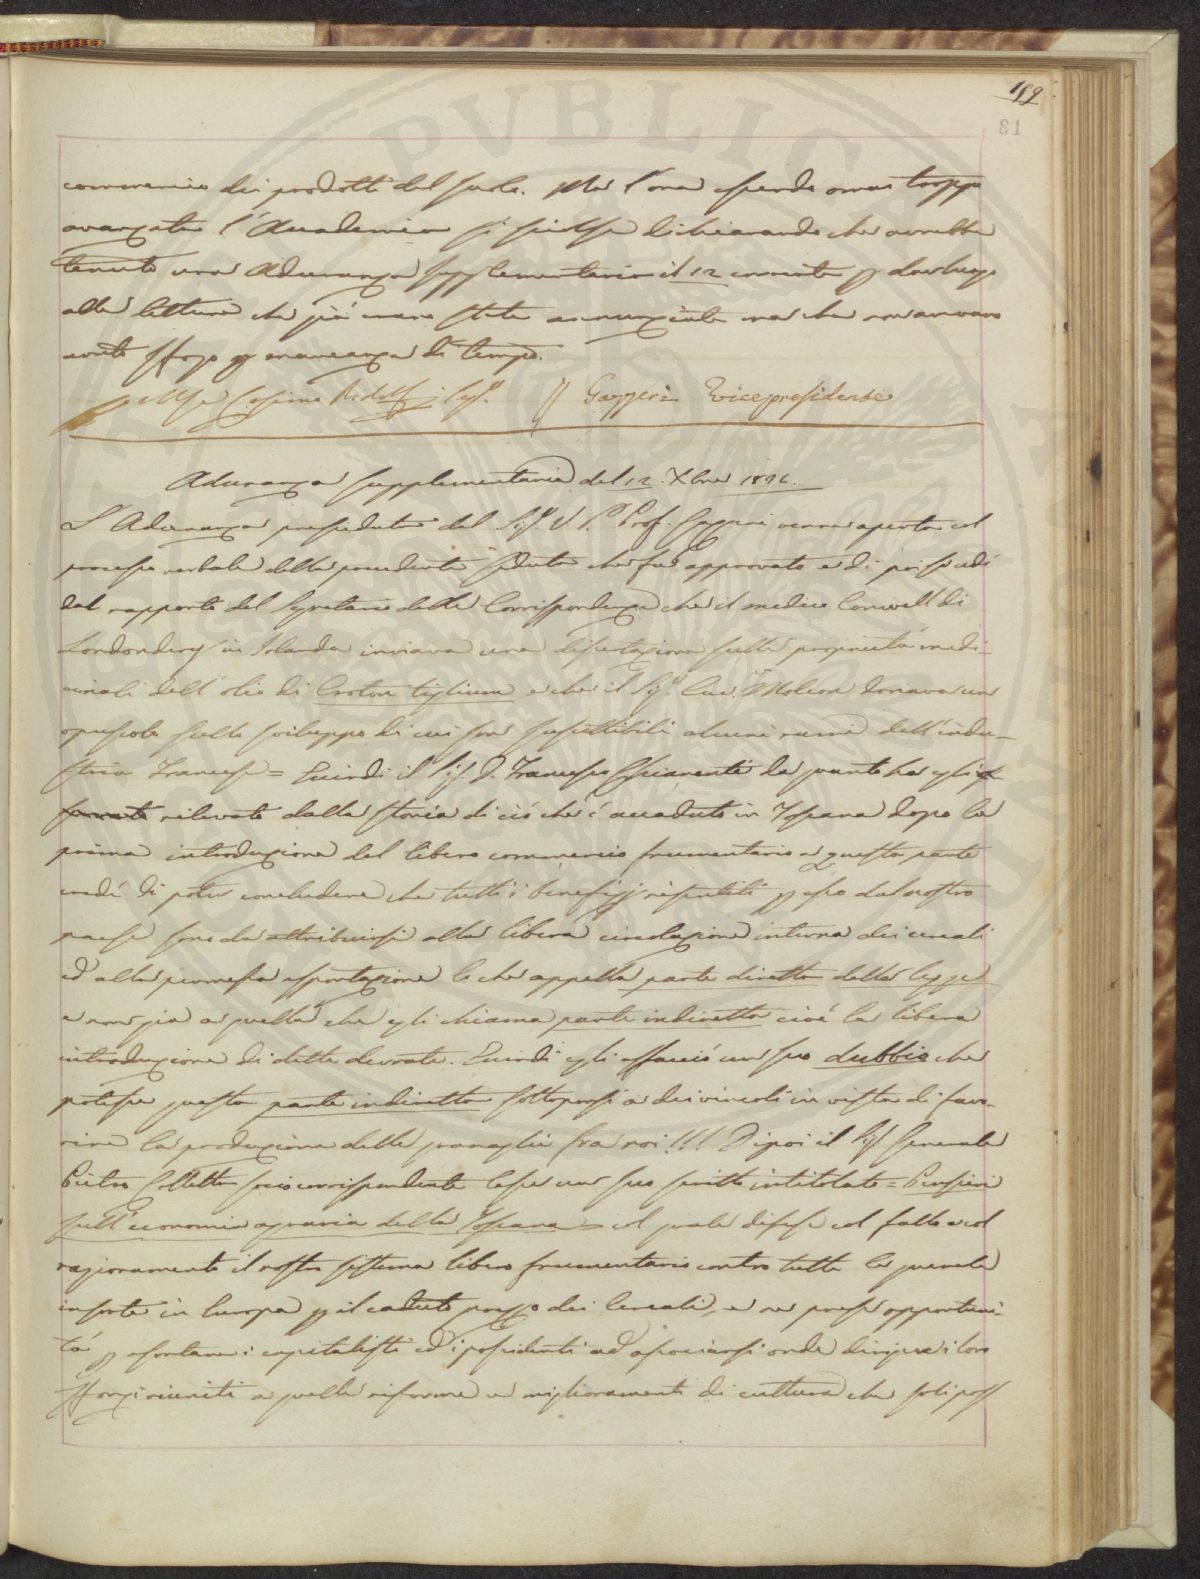 159
81
commercio dei prodotti del suolo. Ma l'ora essendo omai troppo
avanzata l'Accademia si sciolse dichiarando che avrebbe
tenuto una Adunanza supplementaria il 12 corrente p dar luogo
alle letture che già erano state annunziate ma che non avevano
avuto sfogo p mancanza di tempo.
Mse Cosimo Ridolfi Seg.o Gazzeri Vicepresidente
Adunanza supplementaria del 12. Xbre 1824.
L'Adunanza preseduta dal Sig.r V. P. Prof. Gazzeri venne aperta col
processo verbale della precedente seduta che fu approvato e di poi si udì
dal rapporto del Segretario delle Corrispondenze che il medico Conwell di
Londonderry in Irlanda inviava una dissertazione sulle proprietà medi-
cinali dell'olio di Croton tiglium e che il Sig.r Cav. Moleon donava un
opuscolo sullo sviluppo di cui son suscettibili alcuni rami dell'indu-
stria Francese = Quindi il Sig. D. Francesco Chiarenti da quanto ha egli
rilevato dalla storia di ciò che è accaduto in Toscana dopo la
prima introduzione del libero commercio frumentario a questa parte
credé di poter concludere che tutti i benefizj risentiti p esso dal nostro
paese sono da attribuirsi alla libera circolazione interna dei cereali
ed alla permessa esportazione lo che appella parte diretta della legge
e non già a quella che egli chiama parte indiretta cioè la libera
introduzione di dette derrate. Quindi egli affacciò un suo dubbio che
potesse questa parte indiretta sottoporsi a dei vincoli in vista di favo-
rire la produzione delle granaglie fra noi!!! Dipoi il Sig. Generale
Pietro Colletta socio corrispondente lesse un suo scritto intitolato = Pensieri
sull'economia agraria della Toscana = col quale difese col fatto e col
ragionamento il nostro sistema libero frumentario contro tutte le querele
insorte in Europa p il caduto prezzo dei Cereali, e ne prese opportuni-
tà p esortare i capitalisti ed i possidenti ad associarsi onde dirigere i loro
sforzi riuniti a quelle riforme e miglioramenti di cultura che soli poss